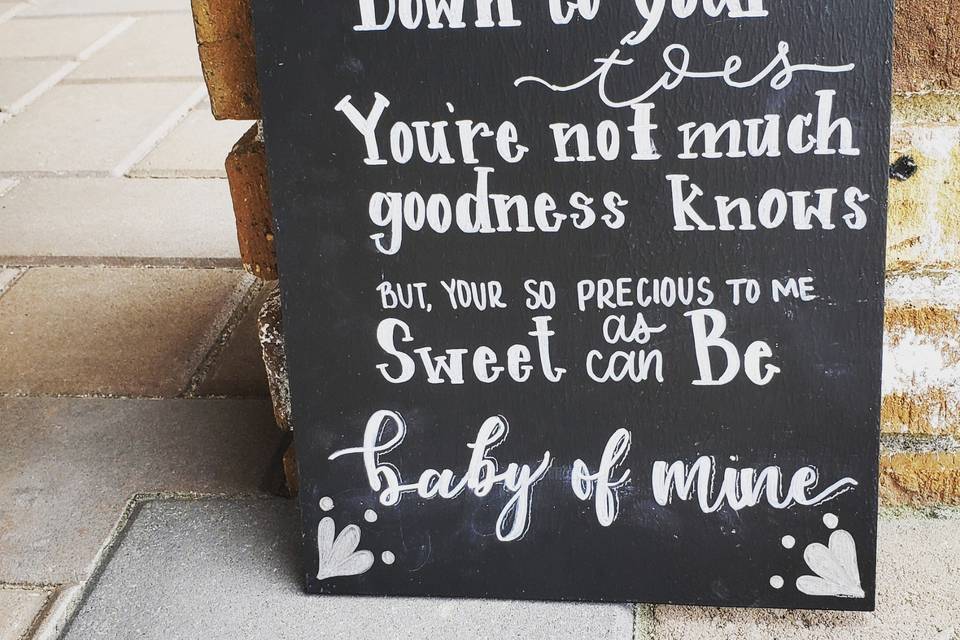 Down to your
toes
You're not much
goodness knows
BUT, YOUR SO PRECIOUS TO ME
Sweet as can Be
baby of mine